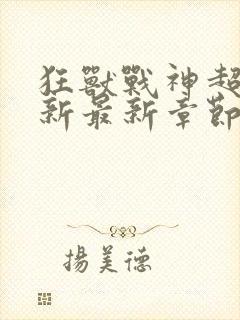 狂獸戰神超
新最新章節
揚美德